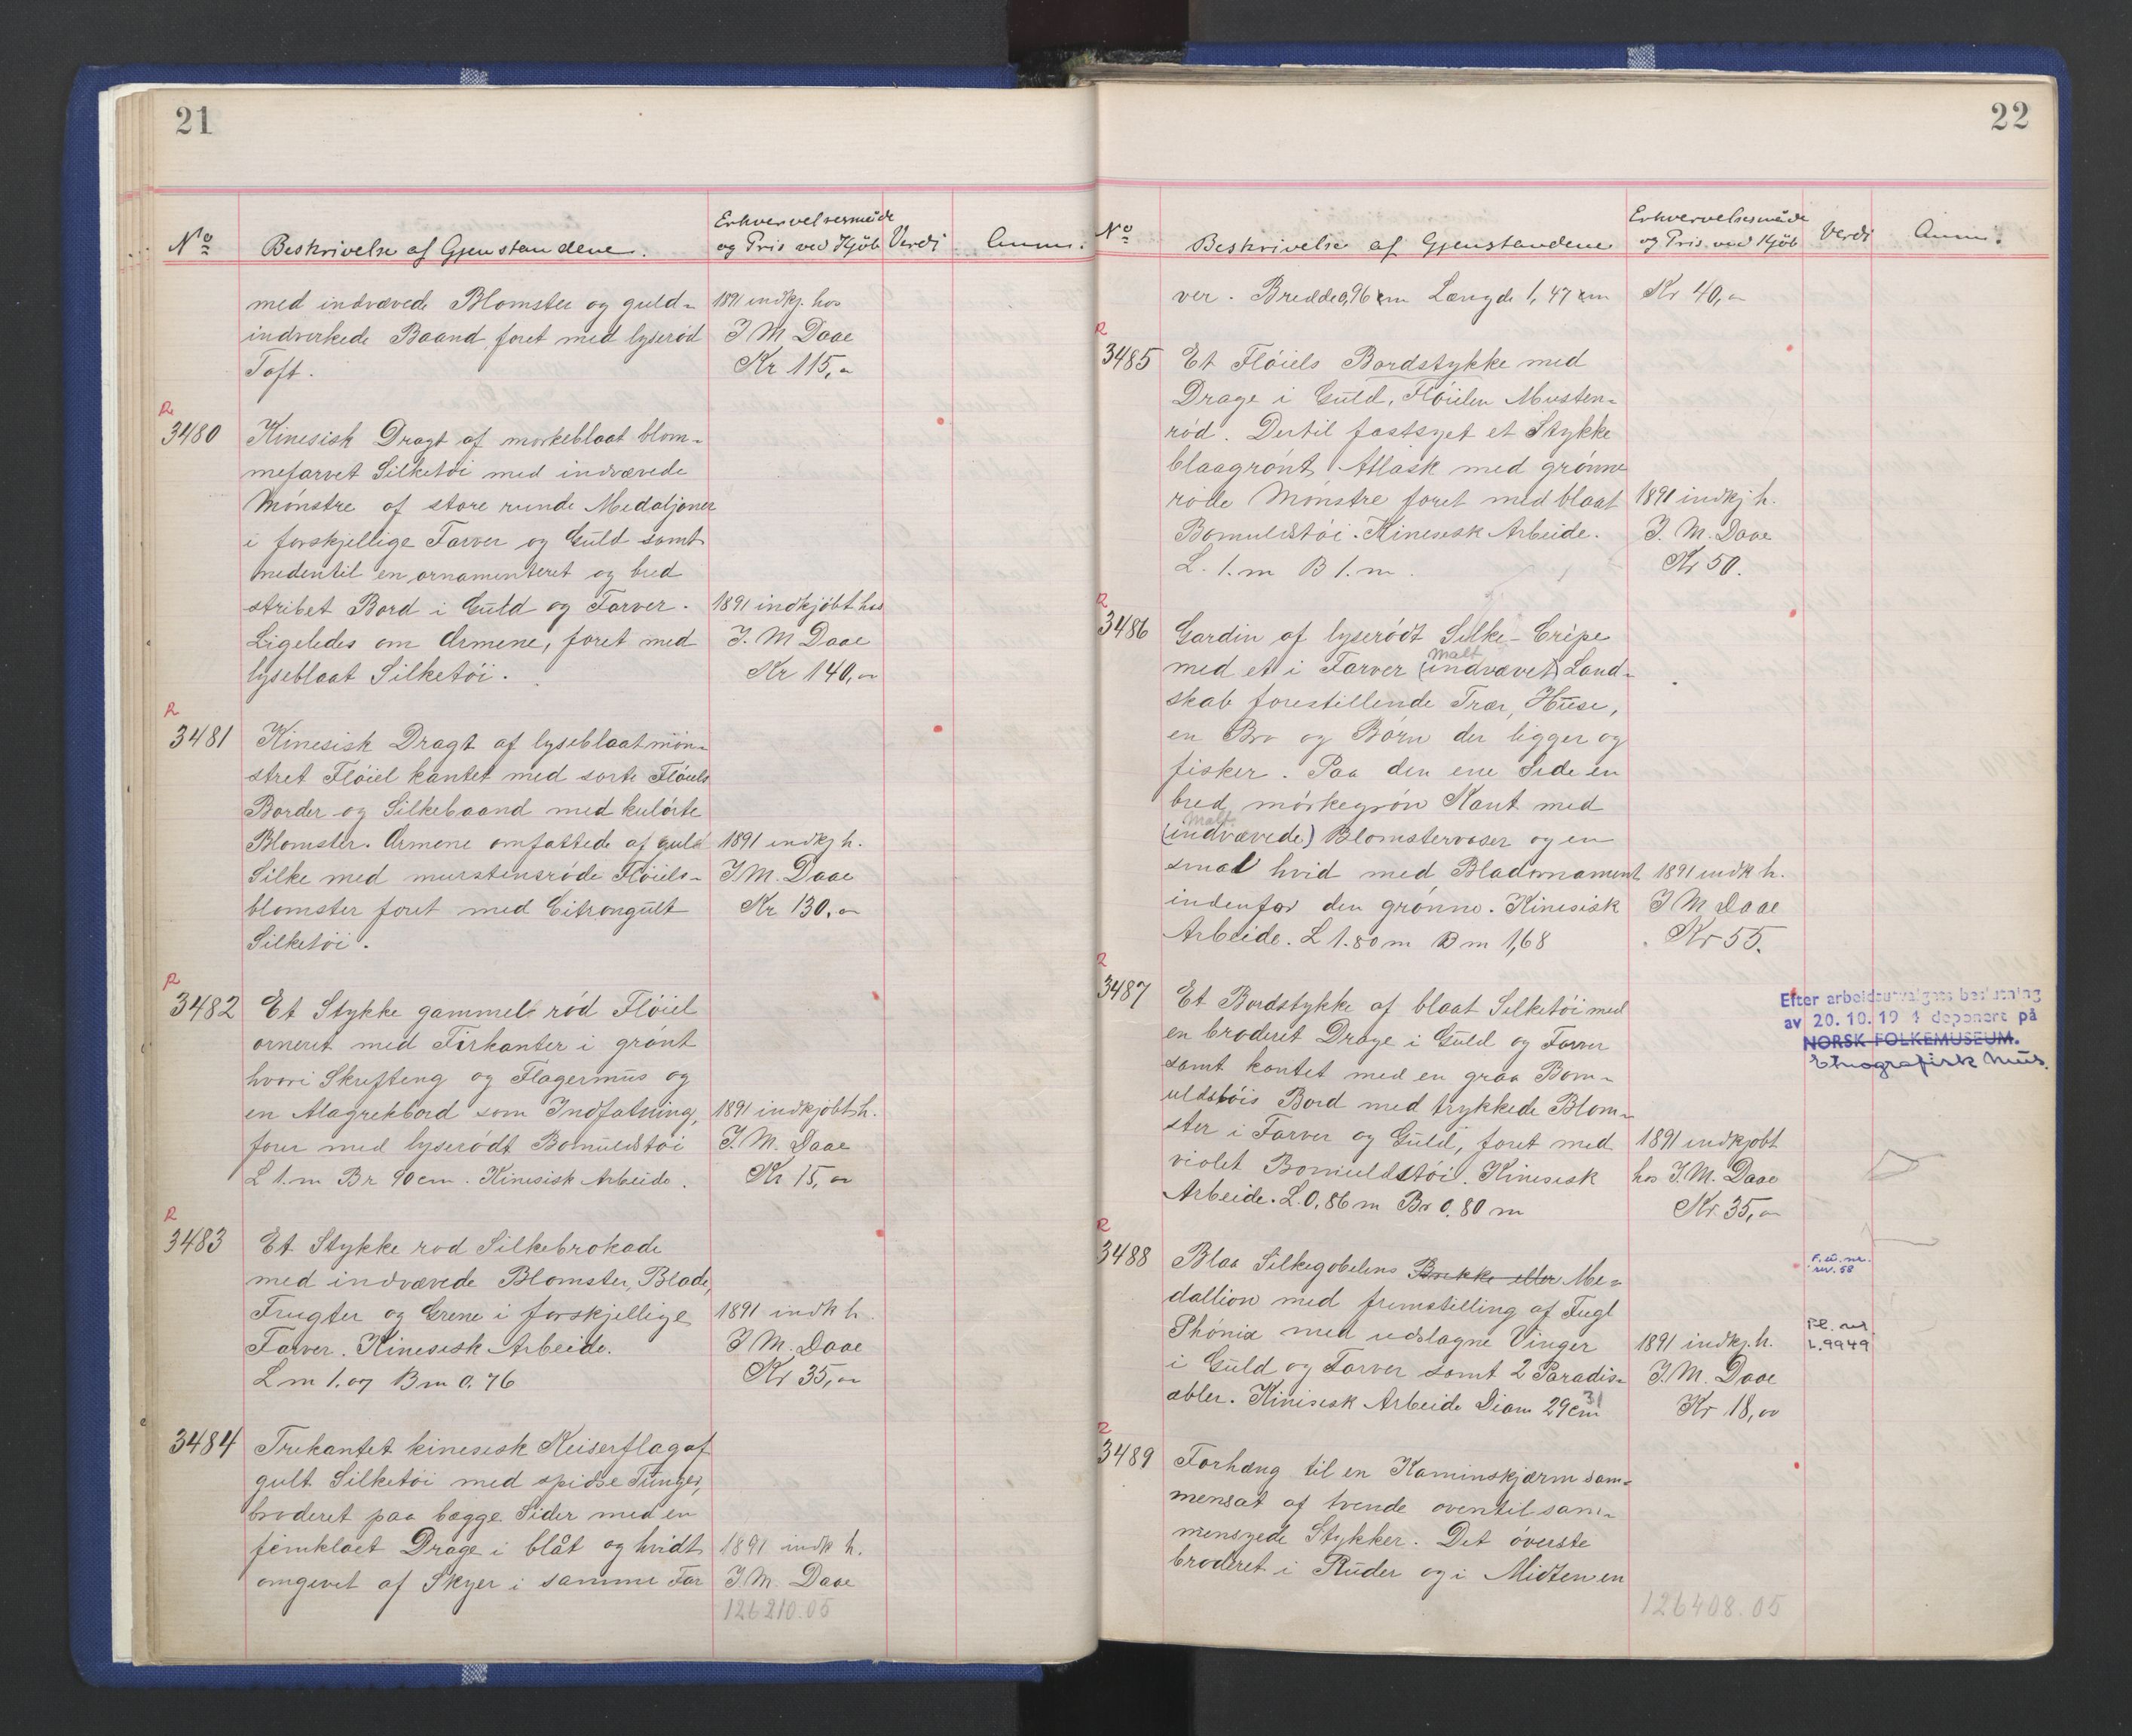 21
Erhvervelsesmåde
No Beskrivelse af Gjenstandene. og Pris ved Kjöb Verdi Anm.
med indvævede Blomster og guld- 1891 indkj. hos
indvirkede Baand, foret med lyseröd J M Daae
Taft. Kr 115,-
R
3480 Kinesisk Dragt af mørkeblaat blom-
mefarvet Silketöi med indvævede
Mönstre af store runde Medaljoner
i forskjellige Farver og Guld samt
nedentil en ornamenteret og bred
stribet Bord i Guld og Farver. 1891 indkjöbt hos
Ligeledes om Ærmene, foret med J. M Daae
lyseblaat Silketöi. Kr 140,-
R
3481 Kinesisk Dragt af lyseblaat mön-
stret Flöiel kantet med sorte Flöiels
Border og Silkebaand med kulörte
Blomster. Ærmene omfattede af gule 1891 indkj h.
Silke med murstensröde Flöiels- J.M. Daae
blomster foret med Citrongult Kr 130,-
Silketöi.
R
3482 Et Stykke gammel röd Flöiel
orneret med Firkanter i grönt
hvori Skrifttegn og Flagermus og
en Alagrekbord som Indfatning, 1891 indkjöbt h.
foret med lyserödt Bomuldstöi J. M. Daae
L 1. m Br 90 cm. Kinesisk Arbeide. Kr 15,-
R
3483 Et Stykke rød Silkebrokade
med indvævede Blomster, Blade,
Frugter og Grene i forskjellige 1891 indk h.
Farver. Kinesisk Arbeide. J M. Daae
L m 1.07 B m 0.76 Kr 35,-
3484 Trekantet kinesisk Keiserflag af
gult Silketöi med spidse Tunger,
broderet paa begge Sider med en
femklöet Drage i blåt og hvidt 1891 indk h.
omgivet af Skyer i samme Far J. M. Daae
126210.05
22
Erhvervelsesmåde
No Beskrivelse af Gjenstandene og Pris ved Kjöb Verdi Anm.
ver. Bredde 0,96 m Længde 1,47 m Kr 40,-
R
3485 Et Flöiels Bordstykke med
Drage i Guld, Flöielen Mursten-
röd. Dertil fastsyet et Stykke
blaagrönt Atlask med grönne
röde Mönstre foret med blaat 1891 indkj h.
Bomuldstöi. Kinesisk Arbeide. J. M. Daae
L. 1. m B 1. m. Kr 50.
R
3486 Gardin af lyserödt Silke-Crêpe
malt
med et i Farver (indvævet) Land-
skab forestillende Trær, Huse,
en Bro og Børn der ligger og
fisker. Paa den ene Side en
bred, mörkegrön Kant med
Malt
(indvævede) Blomstervaser og en
smal hvid med Bladornament 1891 indk h.
indenfor den grönne. Kinesisk J M Daae
Arbeide. L 1.80 m B m 1,68 Kr 55.
R
3487 Et Bordstykke af blaat Silketöi med
en broderet Drage i Guld og Farver
samt kantet med en graa Bom-
uldstöis Bord med trykkede Blom-
ster i Farver og Guld, foret med 1891 indkjobt
violet Bomuldstöi. Kinesisk hos J. M. Daae
Arbeide. L. 0,86 m Br 0,80 m Kr 35,-
Efter arbeidsutvalgets beslutning
av 20. 10. 19 4 deponert på
NORSK FOLKEMUSEUM.
Etnografisk Mus.
R
3488 Blaa Silkegobelins Brikke eller Me-
dallion med fremstilling af Fugl
Phönix med udslagne Vinger 1891 indkj. h.
i Guld og Farver samt 2 Paradis- J. M. Daae
æbler. Kinisisk Arbeide Diam 29 cm 31 Kr 18,00
rev. 58
L.9949
R
3489 Forhæng til en Kaminskjærm sam-
mensat af tvende oventil sam-
mensyede Stykker. Det överste
broderet i Ruder og i Midten en
126408.05